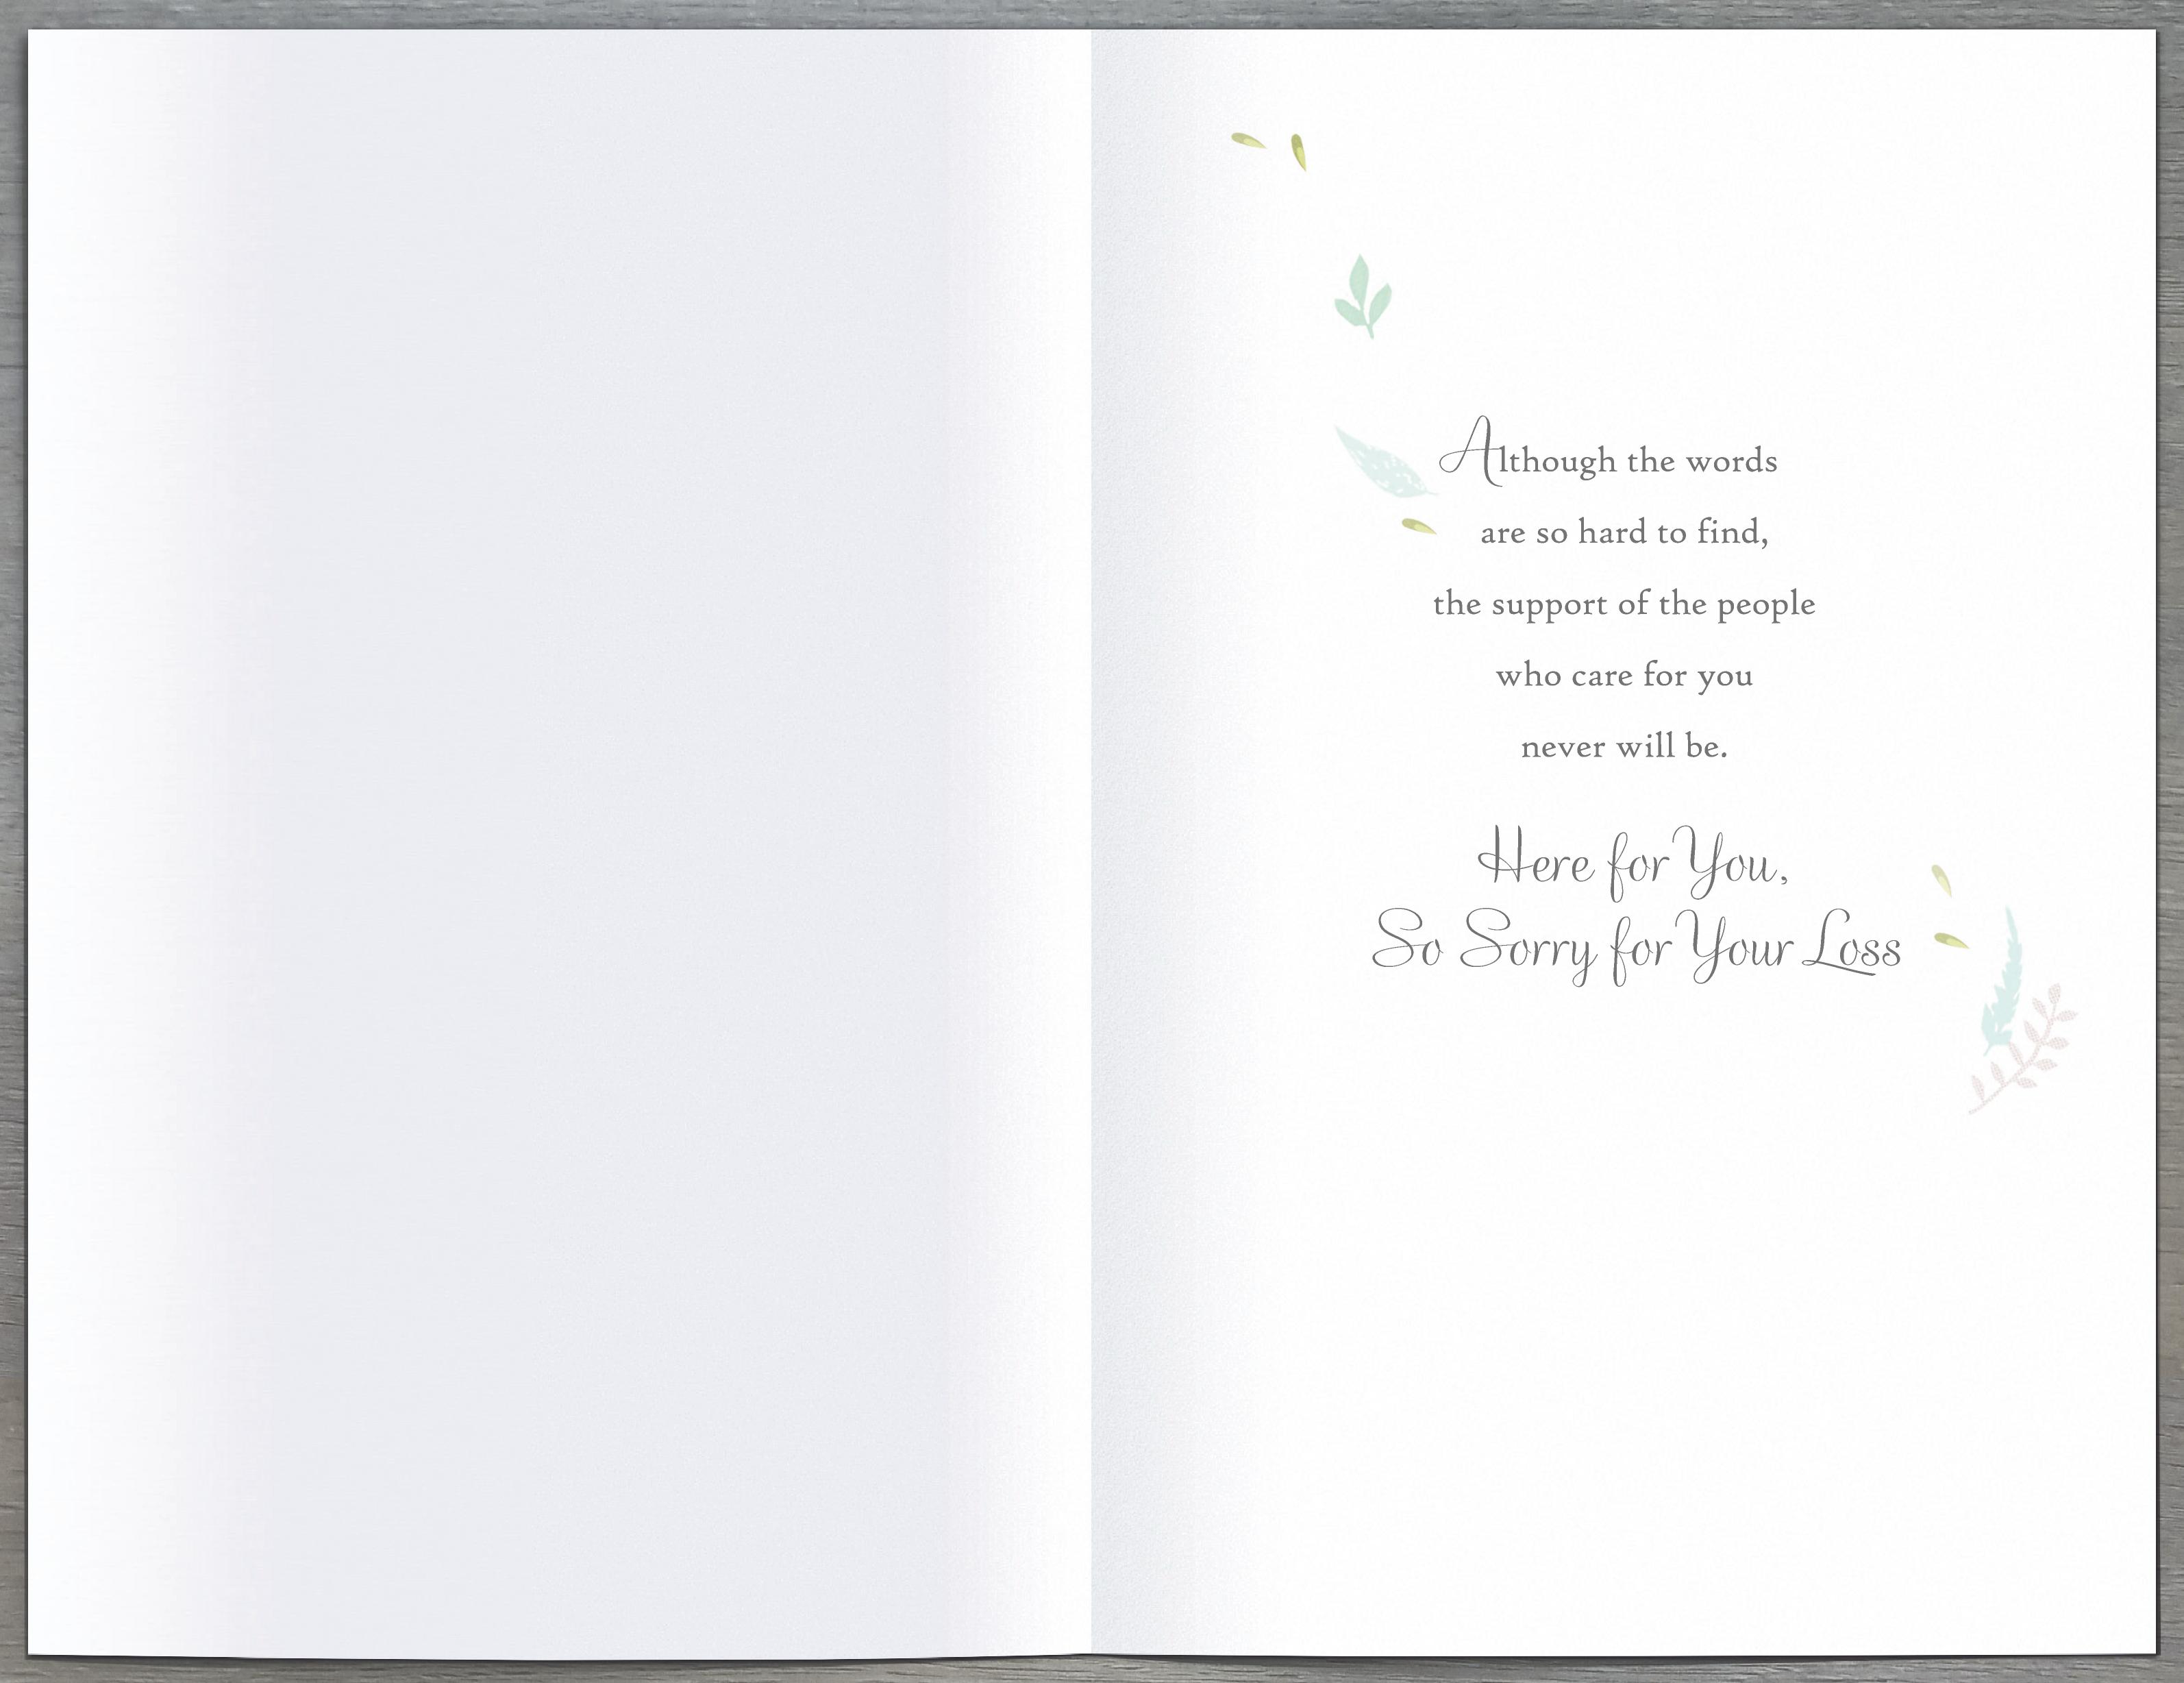 Although the words
are so hard to find,
the support of the people
who care for you
never will be.
Here for You,
So Sorry for Your Loss